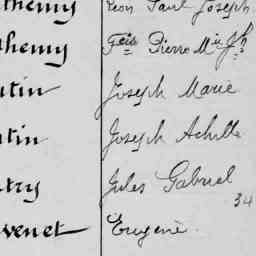 Léon Paul Joseph
themy Fçis Pierre Mie Jh
tin Joseph Marie
tin Joseph Achille
try Jules Gabriel
34
venet Eugène.